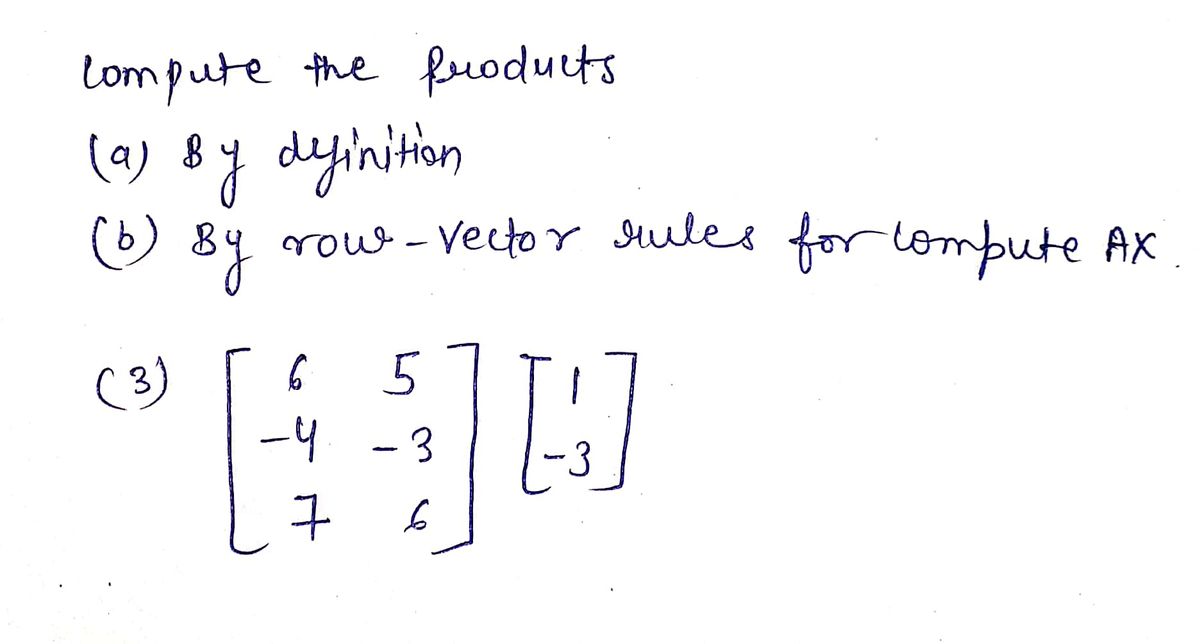 Compute the products
(a) By definition
(b) By row-vector rules for compute AX.
(3) [ 6 5 ] [ 1 ]
[ -4 -3 ] [ -3 ]
[ 7 6 ]